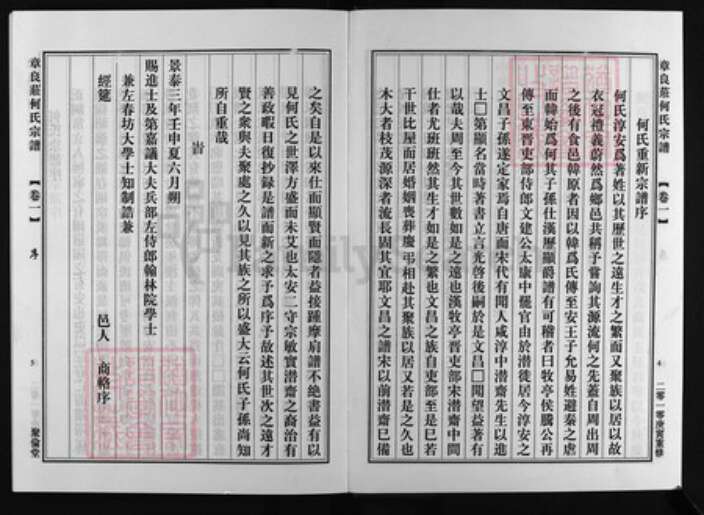 章良莊何氏宗譜
【卷一】
序
4
二零一零庚寅重修
何氏重新宗譜序
何氏淳安爲著姓以其歷世之遠生才之繁而又聚族以居以故
衣冠禮義蔚然爲鄉邑共稱予嘗詢其源流何之先蓋自周出周
之後有食邑韓原者因以韓爲氏傳至安王子允易姓避秦之虐
而韓始爲何其子孫仕漢歷顯爵譜有可稽者曰牧亭侯騰公再
傳至東晋吏部侍郎文建公太康中罷官由於潛徙居今淳安之
文昌子孫遂定家焉自唐而宋代有聞人咸淳中潛齋先生以進
士□第顯名當時著書立言光啓後嗣於是文昌□聞望益著有
以哉夫周至今其世數如是之遠也漢牧亭晋吏部宋潛齋中間
仕者尤班班然其生才如是之繁也文昌之族自吏部至是巳若
干世比屋而居婚姻喪葬慶弔相赴其聚族以居又若是之久也
木大者枝茂源深者流長固其宜耶文昌之譜宋以前潛齋巳備
之矣自是以來仕而顯賢而隱者益接踵摩肩譜不絶書益有以
見何氏之世澤方盛而未艾也太安二守宗敏實潛齋之裔治有
善政暇日復抄録是譜而新之求予爲序予故述其世次之遠才
賢之衆與夫聚處之久以見其族之所以盛大云何氏子孫尚知
所自重哉
旹
景泰三年壬申夏六月朔
賜進士及第嘉議大夫兵部左侍郎翰林院學士
兼左春坊大學士知制誥兼
經筵
邑人 商輅序
章良莊何氏宗譜
【卷一】
序
5
聚倫堂